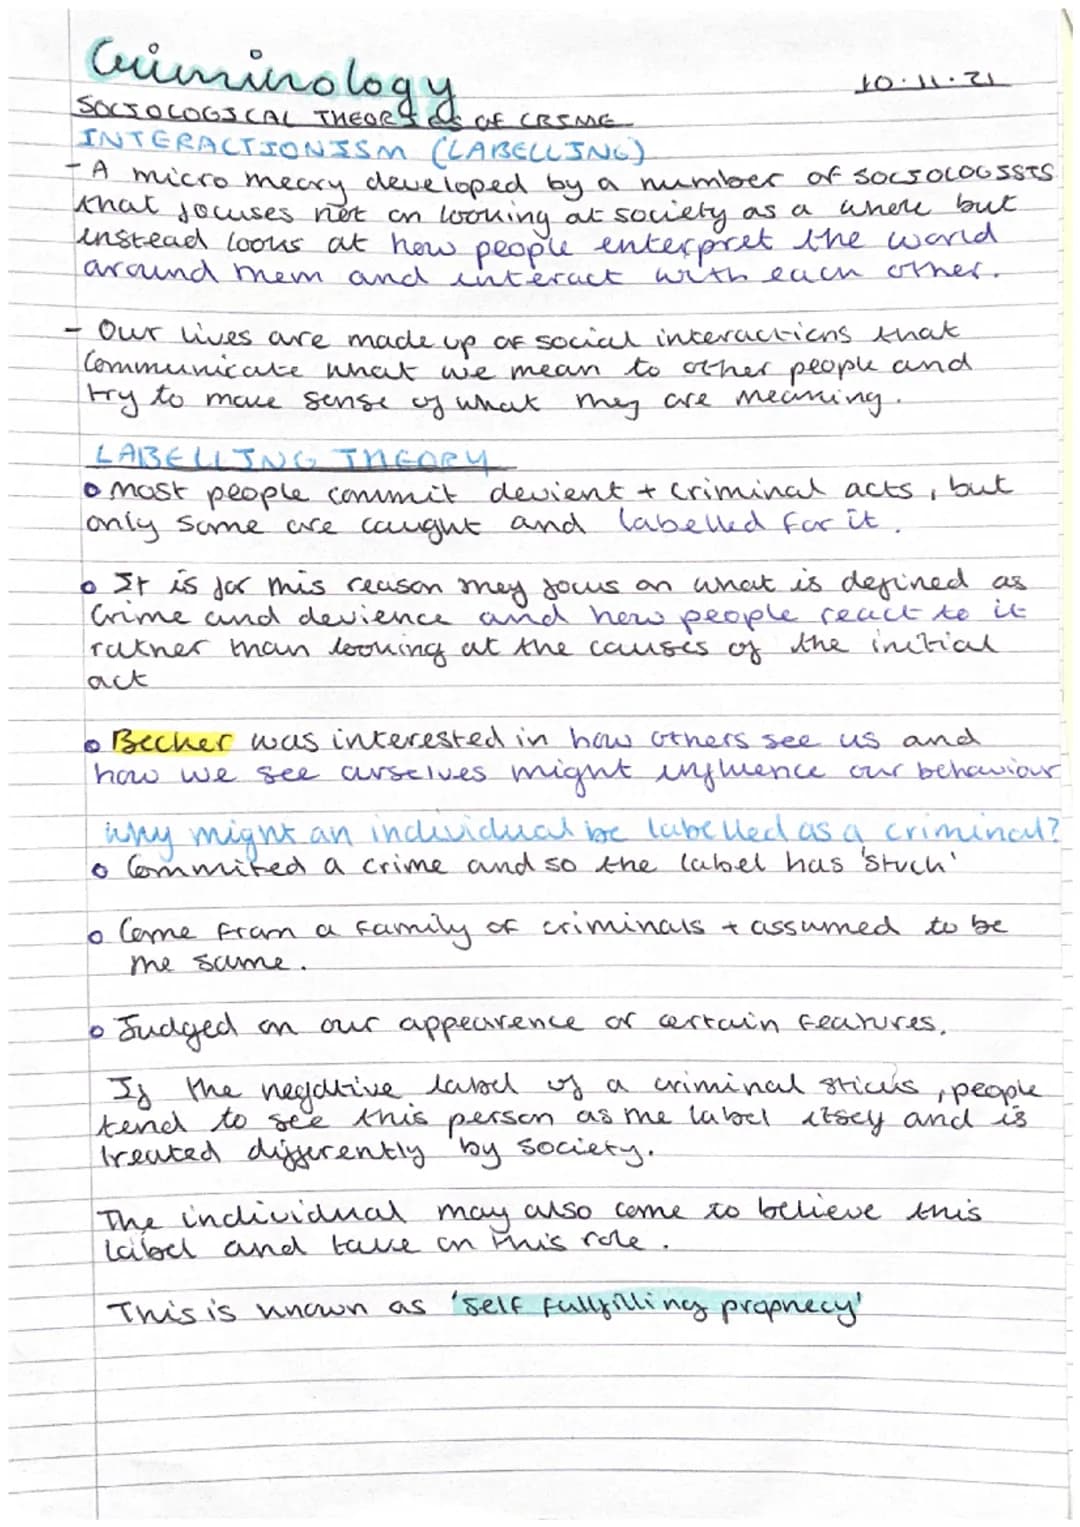 Criminology
10.11.21
SOCIOLOGICAL THEORIES OF CRIME
INTERACTIONISM (LABELLING)
- A micro theory developed by a number of SOCIOLOGISTS
that focuses not on looking at society as a whole but
instead looks at how people enterpret the world
around them and interact with each other.
- Our lives are made up of social interactions that
Communicate what we mean to other people and
try to make sense of what they are meaning.
LABELLING THEORY
o most people commit devient + criminal acts, but
only some are caught and labelled for it.
o It is for this reason they focus on what is defined as
Crime and devience and how people react to it
rather than looking at the causes of the initial
act
o Becker was interested in how others see us and
how we see ourselves might influence our behaviour
why might an individual be labelled as a criminal?
o Commited a crime and so the label has 'stuck'
o Come from a family of criminals + assumed to be
the same.
o Judged on our appearence or certain features.
If the negative label of a criminal sticks, people
tend to see this person as the label itself and is
treated differently by society.
The individual may also come to believe this
label and take on this role.
This is known as 'self fullfilling prophecy'